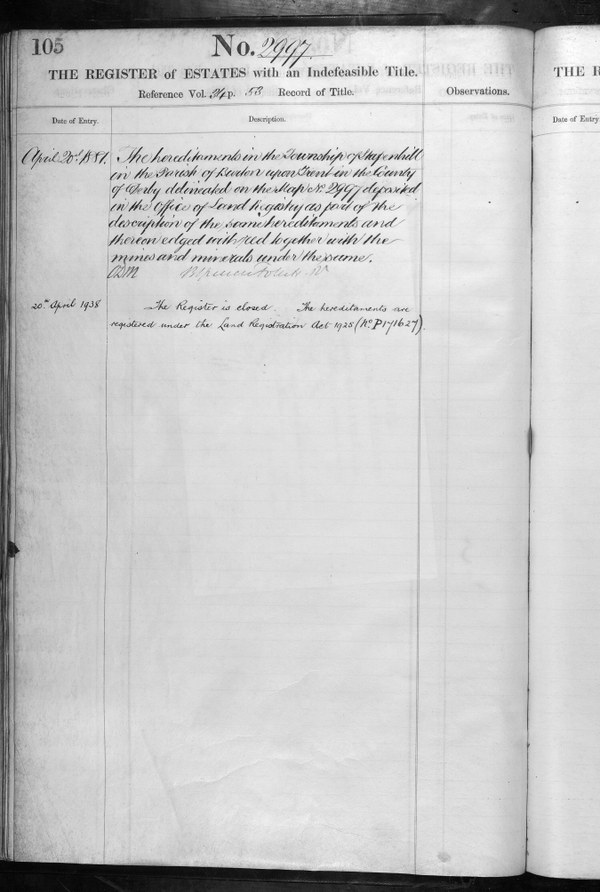 105
No. 2997.
THE REGISTER of ESTATES with an Indefeasible Title.
Reference Vol. 24 p. 53 Record of Title.
Observations.
Date of Entry.
Description.
April 20th 1881.
The hereditaments in the Township of Stapenhill
in the Parish of Burton upon Trent in the County
of Derby delineated on the Map No. 2997 deposited
in the Office of Land Registry as part of the
description of the same hereditaments and
thereon edged with red together with the
mines and minerals under the same.
20th April 1938
The Register is closed. The hereditaments are
registered under the Land Registration Act 1925 (No. P171627).
THE R
Date of Entry